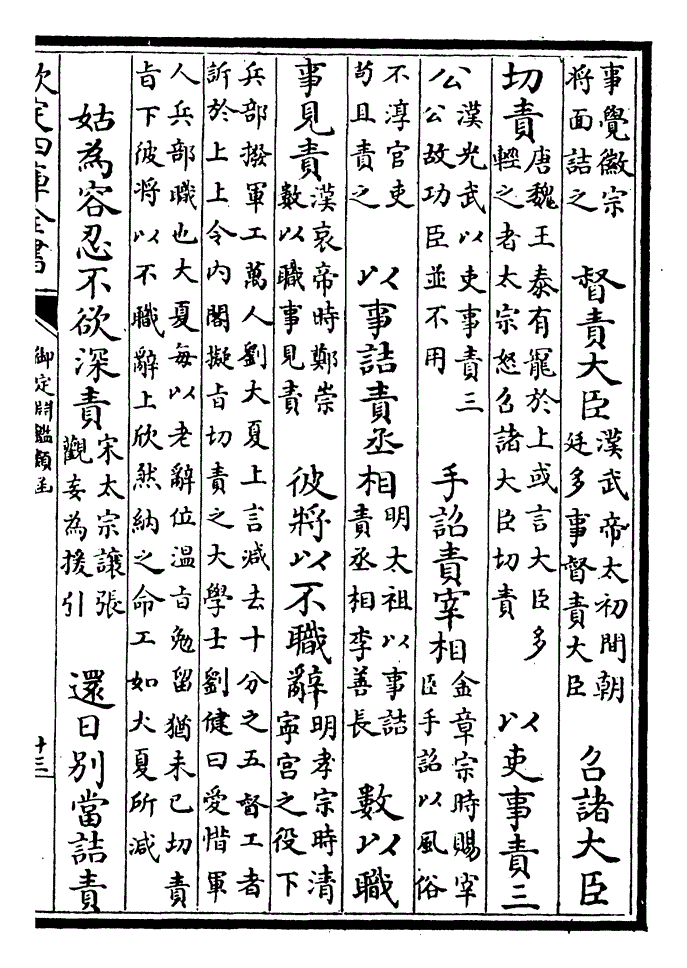 事覺徽宗
将面詰之
督責大臣
漢武帝太初間朝
廷多事督責大臣
召諸大臣
切責
唐魏王泰有寵於上或言大臣多
輕之者太宗怒召諸大臣切責
以吏事責三
公
漢光武以吏事責三
公故功臣並不用
手詔責宰相
金章宗時賜宰
臣手詔以風俗
不淳官吏
苟且責之
以事詰責丞相
明太祖以事詰
責丞相李善長
數以職
事見責
漢哀帝時鄭崇
數以職事見責
彼將以不職辭
明孝宗時清
寧宫之役下
兵部撥軍工萬人劉大夏上言減去十分之五督工者
訴於上上令内閣擬旨切責之大學士劉健曰愛惜軍
人兵部職也大夏每以老辭位溫旨勉留猶未已切責
旨下彼將以不職辭上欣然納之命工如大夏所減
姑為容忍不欲深責
宋太宗讓張
觀妄為援引
還日別當詰責
欽定四庫全書
御定淵鑑類函
十三